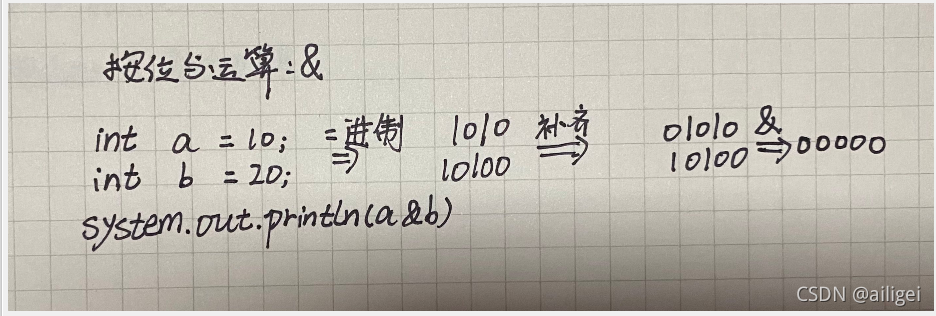 按位与运算:&
int a = 10; 二进制 1010 补齐 01010 &
int b = 20; ⇒ 10100 ⇒ 10100 ⇒ 00000
system.out.println(a&b)
CSDN @ailigei